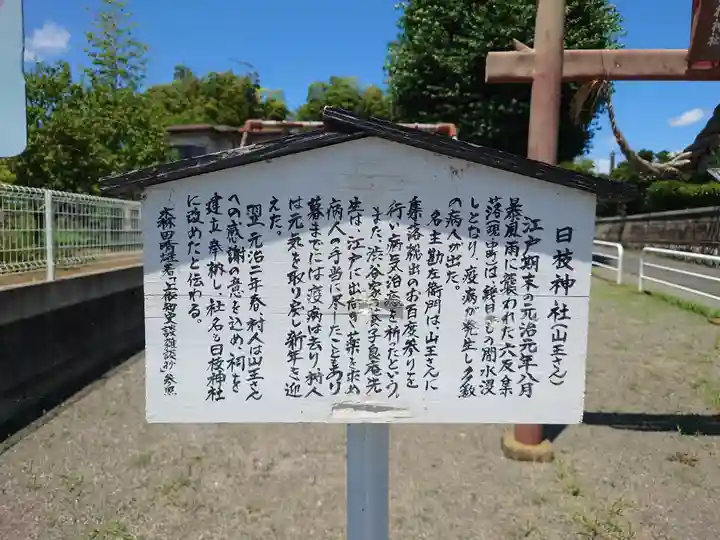 日枝神社(山王さん)
江戸期末の元治元年八月
暴風雨に襲われた六反
落現中町は、幾日もの間水没
しとなり、疫病が発生し多数
の病人が出た。
名主勘左衛門は、山王さんに
集落総出のお百度参りを
行い病気治癒を祈たという。
また、渋谷家の養子良庵先
生は、江戸に出向き薬を求め
病人の手当に尽したこともあり
暮までには疫病は去り村人
は元気を取り戻し新年を迎
えた。
翌、元治二年春、村人は山王さん
への感謝の意を込め祠を
建立奉納し、社名を日枝神社
に改めたと伝わる。
森田晴雄著 参照